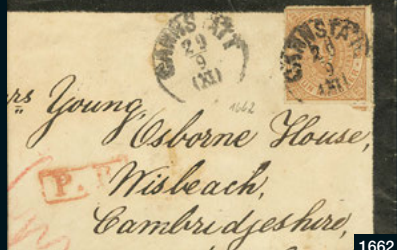 CANNSTATT
29
9
(XI)
CANNSTATT
29
9
(XI)
1662
Young,
Osborne House,
P.
Wisbeach,
Cambridgeshire,
1662